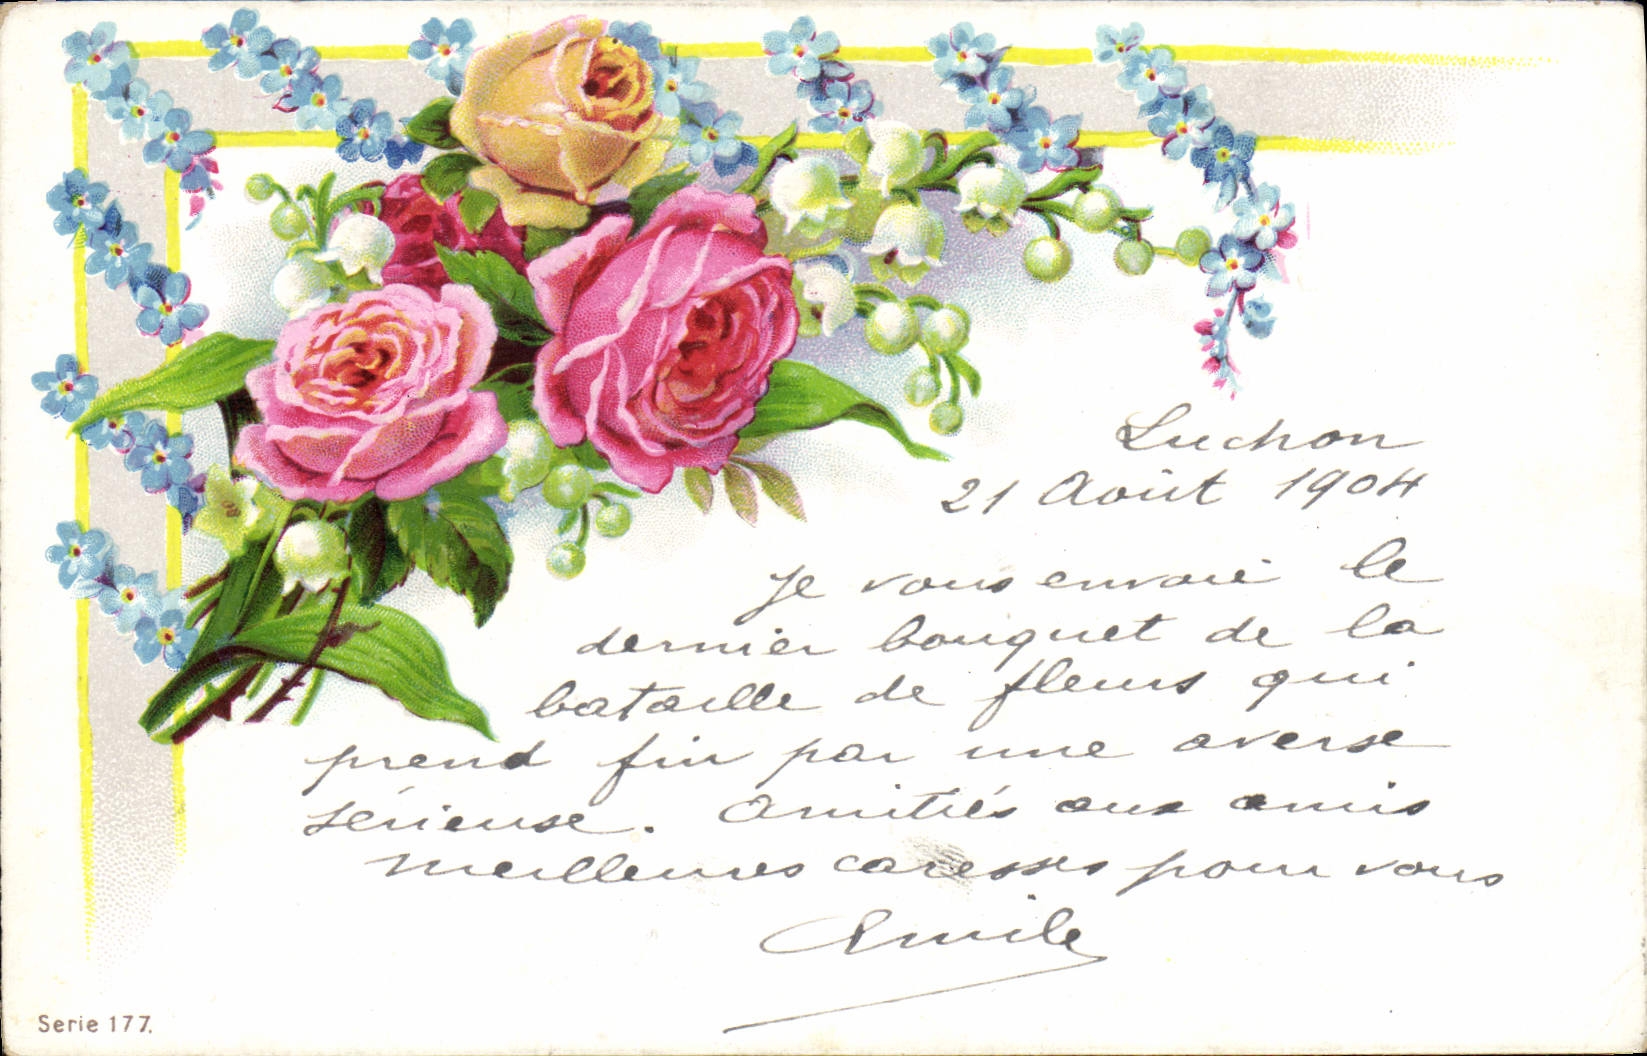 Luchon
21 Août 1904
Je vous envoie le
dernier bouquet de la
bataille de fleurs qui
prend fin par une averse
sérieuse. Amitiés aux amis
Meilleures caresses pour vous
Emile
Serie 177.